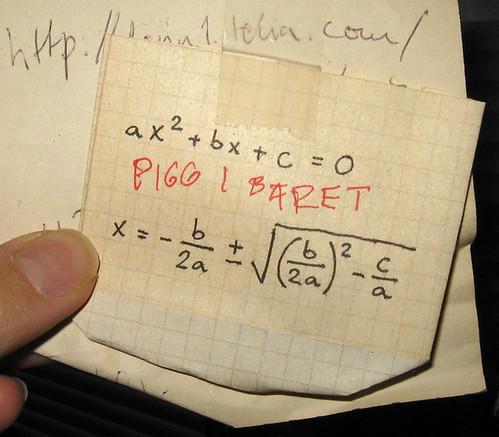 http://
.com/
ax² + bx + c = 0
PIGG I BARET
x = - b/2a ± √((b/2a)² - c/a)